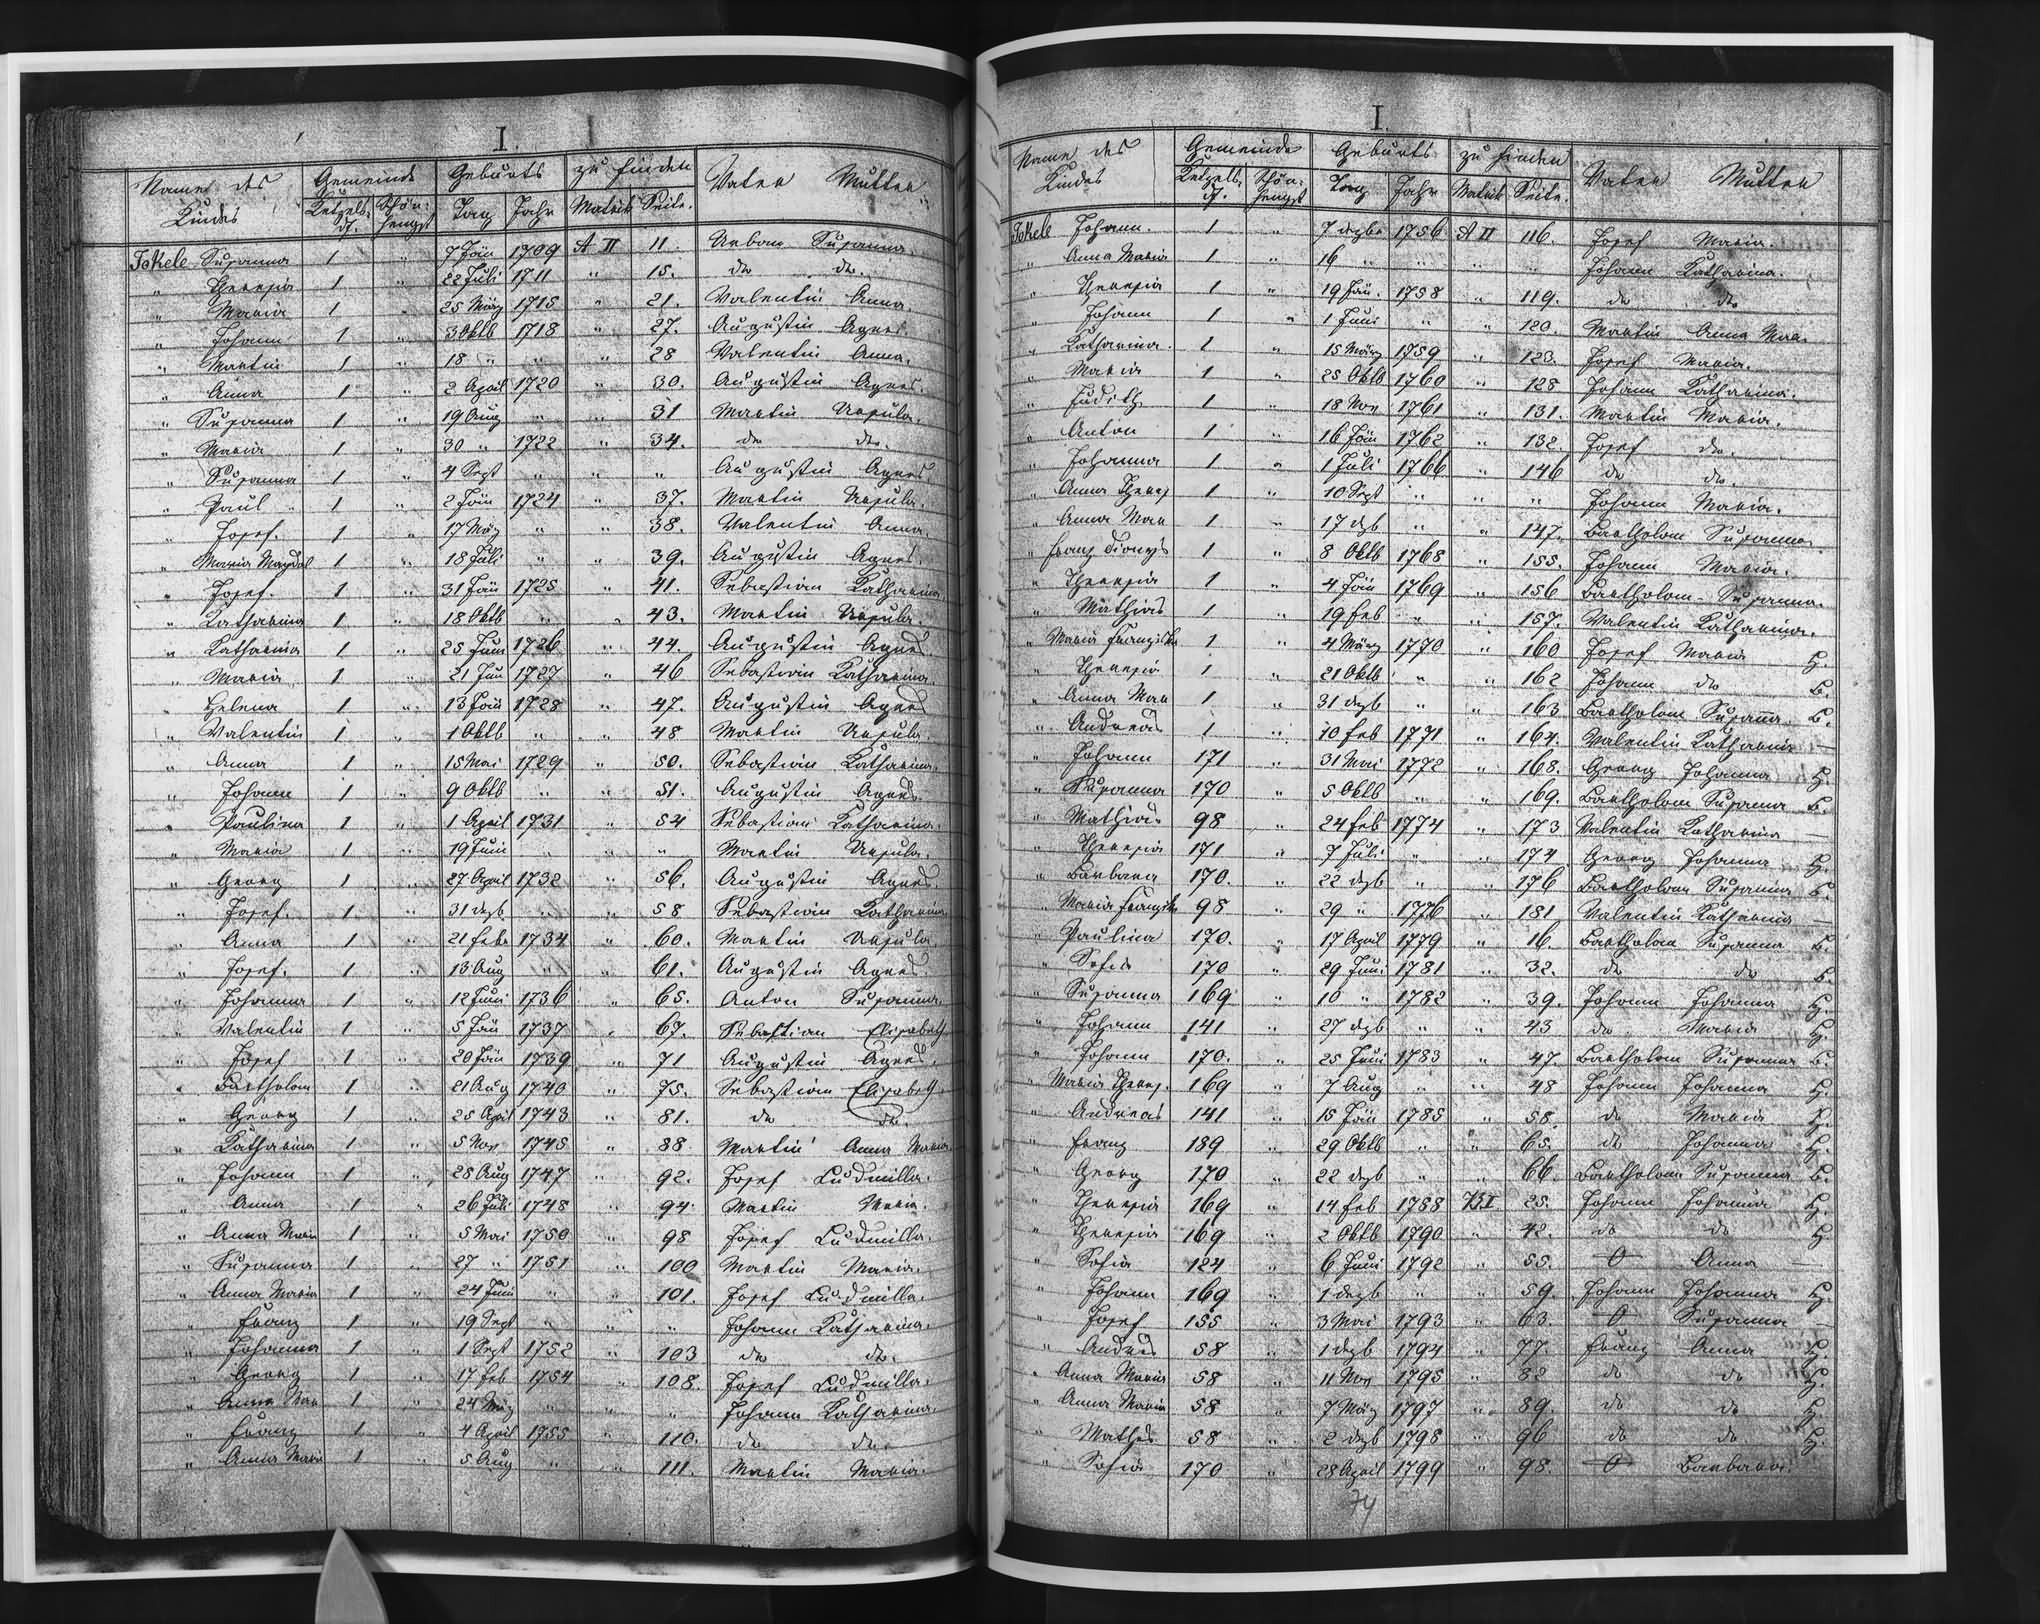 I.
Name des Kindes Gemeinde Geburts zu finden Vater Mutter
Ketzelsdf. Schönhengst Tag Jahr Matrik Seite.
Jokele Susanna 1 " 7 Jän 1709 A II 11. Urban Susanna.
" Theresia 1 " 22 Juli 1711 " 15. do do.
" Maria 1 " 25 März 1715 " 21. Valentin Anna.
" Johann 1 " 3 Oktb 1718 " 27. Augustin Agnes.
" Martin 1 " 18 " " " 28 Valentin Anna.
" Anna 1 " 2 April 1720 " 30. Augustin Agnes.
" Susanna 1 " 19 Aug " " 31 Martin Ursula.
" Maria 1 " 30 " 1722 " 34. do do.
" Susanna 1 " 4 Sept " " " Augustin Agnes
" Paul 1 " 2 Jän 1724 " 37. Martin Ursula.
" Josef. 1 " 17 Mär " " 38. Valentin Anna.
" Maria Magdal 1 " 18 Juli " " 39. Augustin Agnes.
" Josef. 1 " 31 Jän 1725 " 41. Sebastian Katharina
" Katharina 1 " 18 Oktb " " 43. Martin Ursula.
" Katharina 1 " 25 Juni 1726 " 44. Augustin Agnes
" Maria 1 " 21 Jun 1727 " 46 Sebastian Katharina
" Helena 1 " 13 Jän 1728 " 47. Augustin Agnes
" Valentin 1 " 1 Oktb " " 48 Martin Ursula.
" Anna 1 " 15 Mai 1729 " 50. Sebastian Katharina.
" Johann 1 " 9 Oktb " " 51. Augustin Agnes
" Paulina 1 " 1 April 1731 " 54 Sebastian Katharina.
" Maria 1 " 19 Juni " " " Martin Ursula.
" Georg 1 " 27 April 1732 " 56. Augustin Agnes
" Josef. 1 " 31 dezb " " 58 Sebastian Katharina
" Anna 1 " 21 Febr 1734 " 60. Martin Ursula
" Josef. 1 " 13 Aug " " 61. Augustin Agnes
" Johanna 1 " 12 Juni 1736 " 65. Anton Susanna.
" Valentin 1 " 5 Jän 1737 " 67. Sebastian Elisabeth
" Josef 1 " 20 Jän 1739 " 71 Augustin Agnes
" Bartholom 1 " 21 Aug 1740 " 75. Sebastian Elisabeth
" Georg 1 " 25 April 1743 " 81. do do.
" Katharina 1 " 5 Nov 1745 " 88. Martin Anna Maria
" Johann 1 " 28 Aug 1747 " 92. Josef Ludmilla.
" Anna 1 " 26 Juli 1748 " 94. Martin Maria.
" Anna Maria 1 " 5 Mai 1750 " 98 Josef Ludmilla.
" Susanna 1 " 27 " 1751 " 100 Martin Maria.
" Anna Maria 1 " 24 Juni " " 101. Josef Ludmilla.
" Franz 1 " 19 Sept " " " Johann Katharina.
" Johanna 1 " 1 Sept 1752 " 103 do do.
" Georg 1 " 17 Feb 1754 " 108. Josef Ludmilla.
" Anna Mar 1 " 24 März " " " Johann Katharina.
" Franz 1 " 4 April 1755 " 110. do do.
" Anna Maria 1 " 5 Aug " " 111. Martin Maria.
I.
Name des Kindes Gemeinde Geburts zu finden Vater Mutter
Ketzelsdf. Schönhengst Tag Jahr Matrik Seite.
Jokele Johann. 1 " 7 dezbr 1756 A II 116. Josef Maria.
" Anna Maria 1 " 16 " " " " Johann Katharina.
" Theresia 1 " 19 Jän. 1758 " 119. do do
" Johann 1 " 1 Juni " " 120. Martin Anna Mar.
" Katharina. 1 " 15 März 1759 " 123 Josef Maria.
" Maria 1 " 25 Oktb 1760 " 128 Johann Katharina.
" Judith 1 " 18 Nov 1761 " 131. Martin Maria.
" Anton 1 " 16 Jän 1762 " 132 Josef do.
" Johanna 1 " 1 Juli 1766 " 146 do do.
" Anna Theres 1 " 10 Sept " " " Johann Maria.
" Anna Mar 1 " 17 dzb " " 147. Bartholom Susanna
" Franz Dionys 1 " 8 Oktb 1768 " 155. Johann Maria.
" Theresia 1 " 4 Jän 1769 " 156 Bartholom Susanna.
" Mathias 1 " 19 Feb " " 157. Valentin Katharina.
" Maria Franziska 1 " 4 März 1770 " 160 Josef Maria H.
" Theresia 1 " 21 Oktb " " 162 Johann do B.
" Anna Mar 1 " 31 dezb " " 163 Bartholom Susanna B.
" Andreas 1 " 10 Feb 1771 " 164. Valentin Katharina —
" Johann 171 " 31 Mai 1772 " 168. Georg Johanna H.
" Susanna 170 " 5 Oktb " " 169. Bartholom Susanna B.
" Mathias 98 " 24 Feb 1774 " 173 Valentin Katharina —
" Theresia 171 " 7 Juli " " 174 Georg Johanna H.
" Barbara 170. " 22 dezb " " 176 Bartholom Susanna B.
" Maria Franziska 98 " 29 " 1776 " 181 Valentin Katharina —
" Paulina 170. " 17 April 1779 " 16. Bartholom Susanna B.
" Sofia 170 " 29 Juni 1781 " 32. do do B.
" Susanna 169 " 10 " 1782 " 39. Johann Johanna H.
" Johann 141 " 27 dezb " " 43 do Maria H.
" Johann 170. " 25 Juni 1783 " 47. Bartholom Susanna B.
" Maria Theres. 169 " 7 Aug " " 48 Johann Johanna H.
" Andreas 141 " 15 Jän 1785 " 58. do Maria H.
" Franz 189 " 29 Oktb " " 65. do Johanna H.
" Georg 170 " 22 dezb " " 66. Bartholom Susanna B.
" Theresia 169 " 14 Feb 1788 B I 25. Johann Johanna H.
" Theresia 169 " 2 Oktb 1790 " 42. do do H
" Sofia 124 " 6 Juni 1792 " 55. O Anna —
" Johann 169 " 1 dezb " " 59. Johann Johanna H.
" Josef 155 " 3 Mai 1793 " 63. O Susanna —
" Andres 58 " 1 dezb 1794 " 77. Franz Anna H.
" Anna Maria 58 " 11 Nov 1795 " 82 do do H.
" Anna Maria 58 " 7 März 1797 " 89. do do H.
" Mathes 58 " 2 dezb 1798 " 96 do do H.
" Sofia 170 " 28 April 1799 " 98. O Barbara.
74